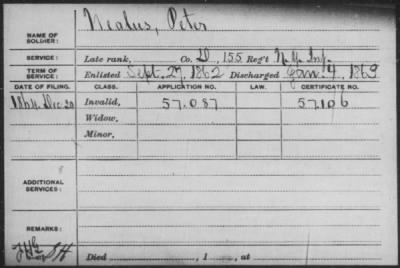 NAME OF SOLDIER: Nealus, Peter
SERVICE: Late rank, Co. D, 155 Reg't N.Y. Inf.
TERM OF SERVICE: Enlisted Sept. 27, 1862 Discharged Jan. 4, 1863
DATE OF FILING. CLASS. APPLICATION NO. LAW. CERTIFICATE NO.
1864. Dec. 20 Invalid, 57.087 57.106
Widow,
Minor,
ADDITIONAL SERVICES:
REMARKS:
Died , 1 , at